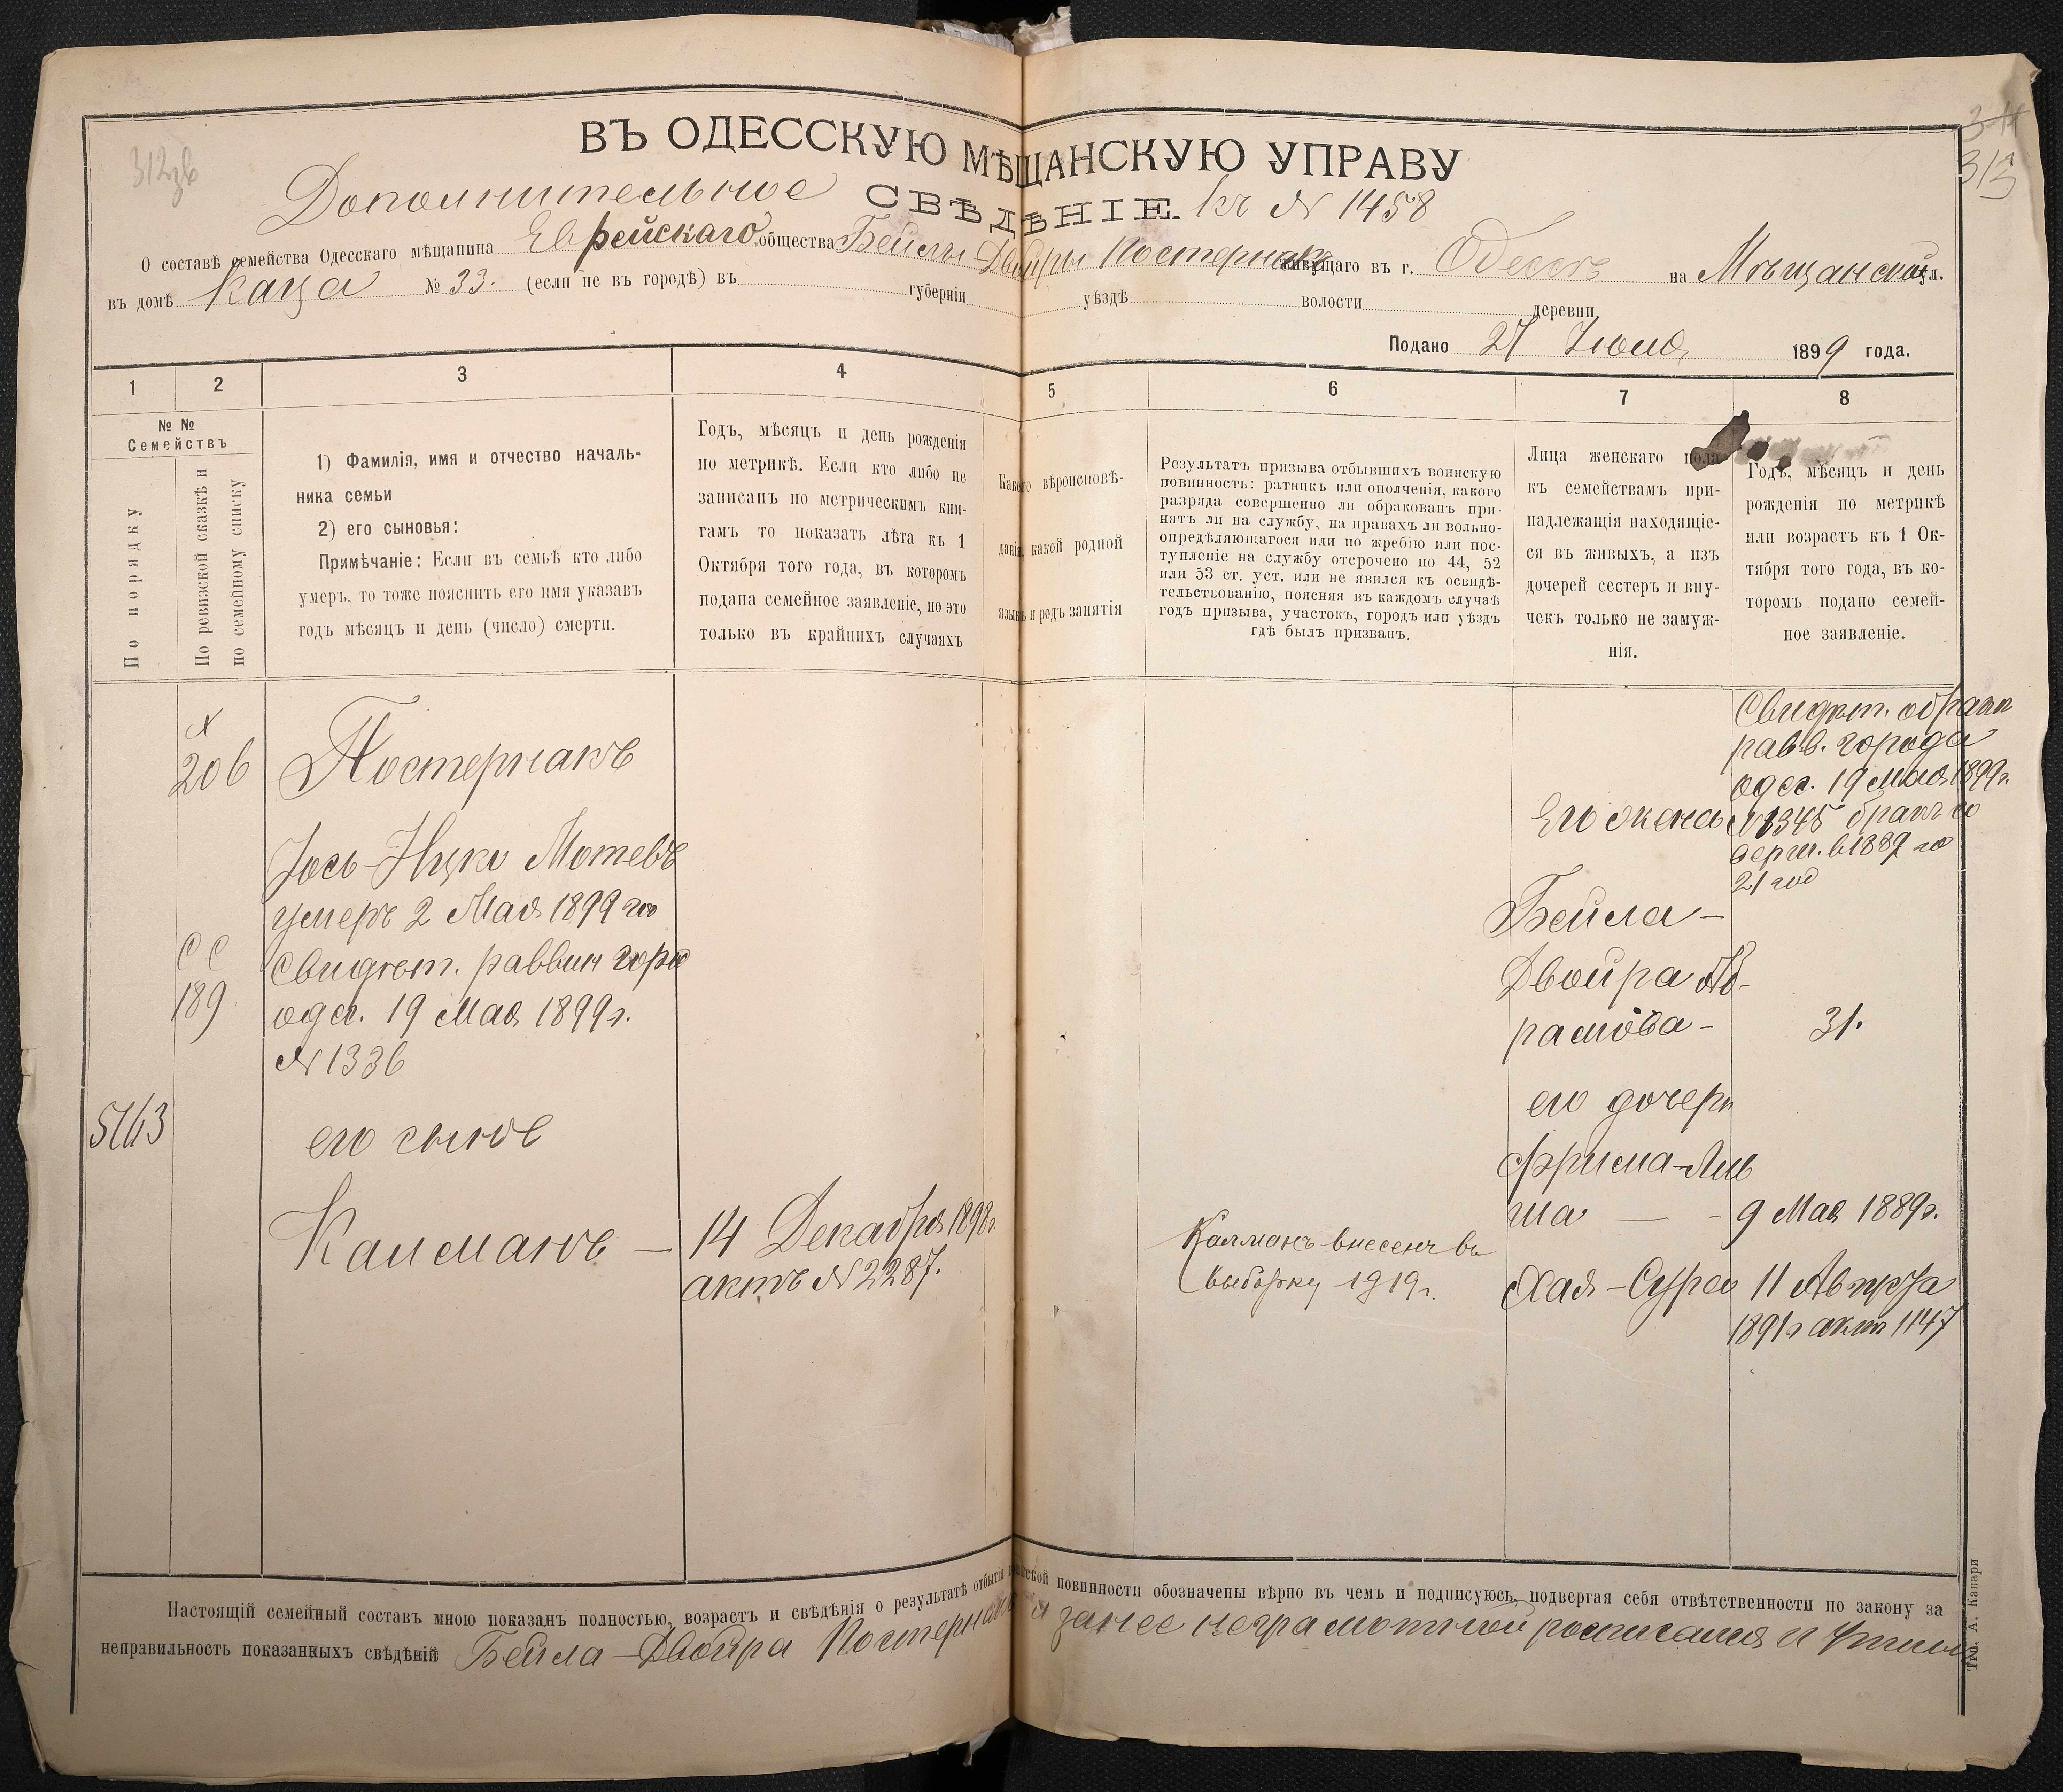 312зв
3
313
ВЪ ОДЕССКУЮ МѢЩАНСКУЮ УПРАВУ
Дополнительное СВѢДѢНІЕ. къ № 1458
О составѣ семейства Одесскаго мѣщанина Еврейскаго общества Бейлы Двойры Постернакъ живущаго въ г. Одессѣ на Мѣщанской ул.
въ домѣ Каца № 33. (если не въ городѣ) въ губерніи уѣздѣ волости деревни
Подано 27 1899 года.
1 2 3 4 5 6 7 8
№ №
Семействъ
По порядку
По ревизской сказкѣ и
по семейному списку
1) Фамилія, имя и отчество началь-
ника семьи
2) его сыновья:
Примѣчаніе: Если въ семьѣ кто либо
умеръ, то тоже пояснить его имя указавъ
годъ мѣсяцъ и день (число) смерти.
Годъ, мѣсяцъ и день рожденія
по метрикѣ. Если кто либо не
записанъ по метрическимъ кни-
гамъ то показать лѣта къ 1
Октября того года, въ которомъ
подана семейное заявленіе, но это
только въ крайнихъ случаяхъ
Какого вѣроисповѣ-
данія, какой родной
языкъ и родъ занятія
Результатъ призыва отбывшихъ воинскую
повинность: ратникъ или ополченія, какого
разряда совершенно ли обракованъ при-
нятъ ли на службу, на правахъ ли вольно-
опредѣляющагося или по жребію или пос-
тупленіе на службу отсрочено по 44, 52
или 53 ст. уст. или не явился къ освидѣ-
тельствованію, поясняя въ каждомъ случаѣ
годъ призыва, участокъ, городъ или уѣздъ
гдѣ былъ призванъ.
Лица женскаго пола
къ семействамъ при-
надлежащія находящіе-
ся въ живыхъ, а изъ
дочерей сестеръ и вну-
чекъ только не замуж-
нія.
Годъ, мѣсяцъ и день
рожденія по метрикѣ
или возрастъ къ 1 Ок-
тября того года, въ ко-
торомъ подано семей-
ное заявленіе.
206
Постернакъ
Іось-Ицко Мотевъ
умеръ 2 Мая 1899 го
Свидѣт. раввин горо
одес. 19 Мая 1899 г.
№ 1336
СС
189
5163
его сынъ
Калманъ —
14 Декабря 1898 г.
актъ № 2287.
Калманъ внесенъ въ
выборку 1919 г.
Его жена
Бейла-
Двойра Аб-
рамова-
31.
Свидѣт. о брак
равв. города
одес. 19 Мая 1899 г.
№ 1345 бракъ со
верш. в 1889 го
21 год
его дочери
Фрима-Ли
ша — - 9 Мая 1889 г.
Хая-Сура 11 Августа
1891 г акт 1147
Настоящій семейный составъ мною показанъ полностью, возрастъ и свѣдѣнія о результатѣ отбытія воинской повинности обозначены вѣрно въ чемъ и подписуюсь, подвергая себя отвѣтственности по закону за
неправильность показанныхъ свѣдѣній Бейла-Двойра Постернакъ а за нее неграмотной росписался
Тип. А. Капари